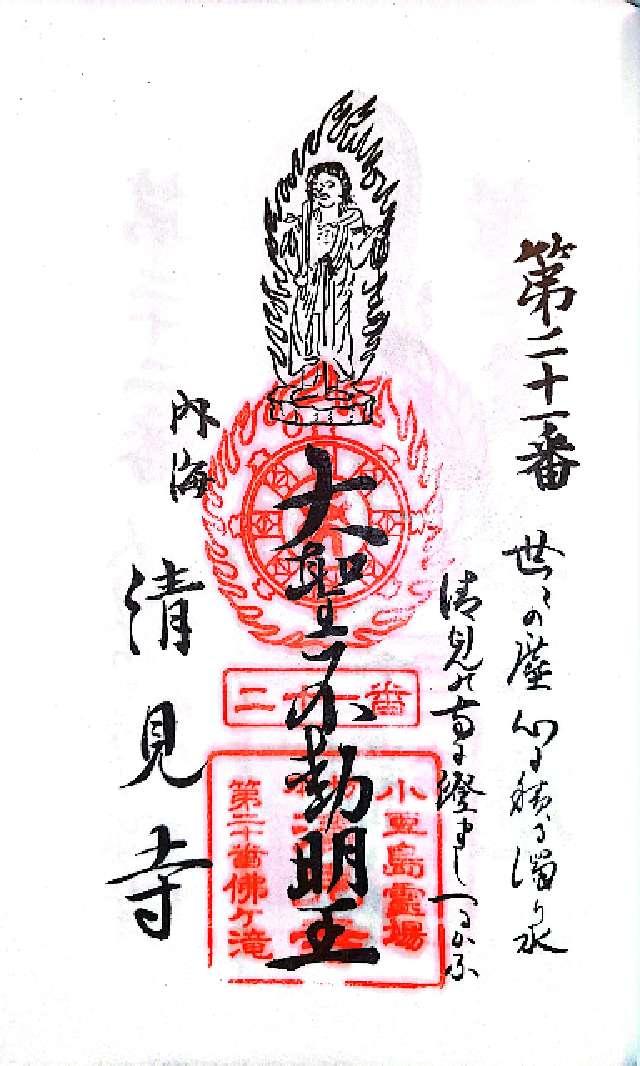 第二十一番
世々の塵 心に積る濁り水
清見の寺に澄まし
大聖不動明王
内海
清見寺
二十一番
小豆島霊場
第二十番佛ヶ滝